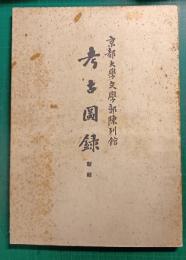 京都大學文學部陳列館
考古圖録
新輯